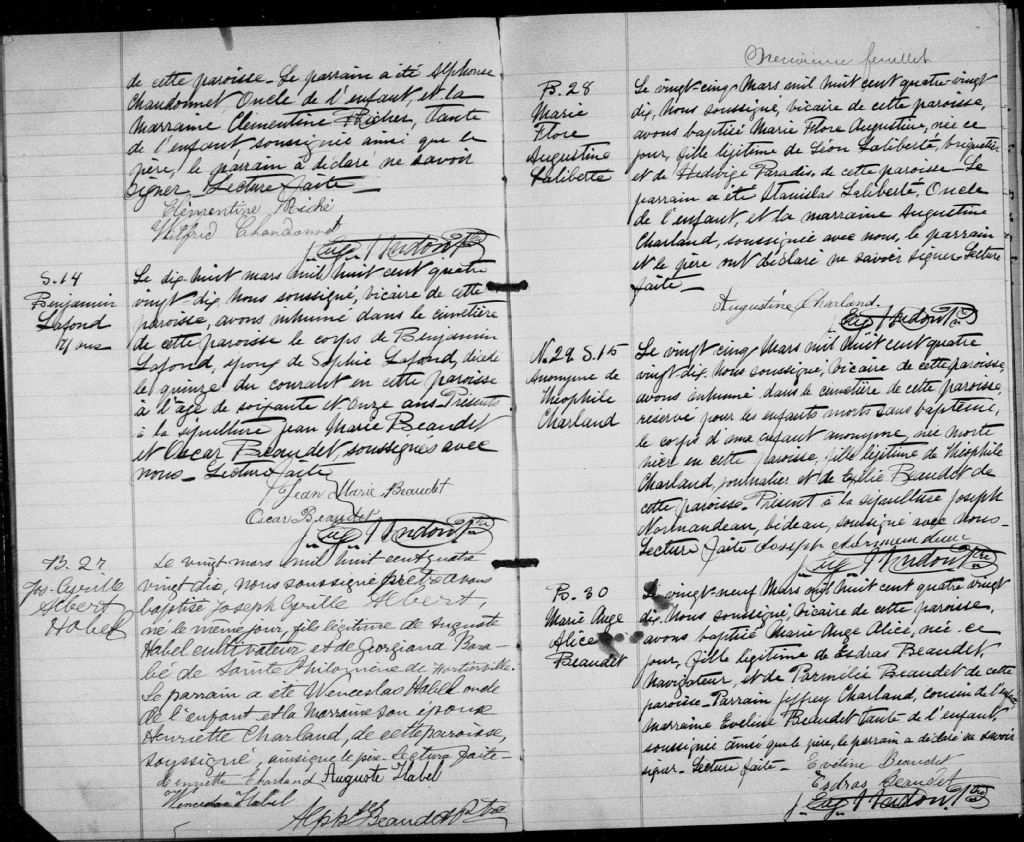 de cette paroisse_ Le parrain a été Alphonse
Chandonnet Oncle de l'enfant, et la
Marraine Clémentine Richer, Tante
de l'enfant soussignée ainsi que le
père, le parrain a déclaré ne savoir
Signer. Lecture faite_
Clémentine Riché
Wilfrid Chandonnet
S. 14
Benjamin
Lafond
71 ans
Le dix-huit mars mil huit cent quatre
vingt-dix, Nous soussigné, vicaire de cette
paroisse, avons inhumé dans le cimetière
de cette paroisse le corps de Benjamin
Lafond, époux de Sophie Lafond, décédé
le quinze du courant en cette paroisse
à l'âge de soixante et Onze ans_ Présents
à la sépulture Jean Marie Beaudet
et Oscar Beaudet, soussignés avec
nous_ Lecture faite
Jean Marie Beaudet
Oscar Beaudet
B. 27
Jos. Cyrille
Albert
Habel
Le vingt mars mil huit cent quatre
vingt dix, nous soussigné prêtre avons
baptisé Joseph Cyrille Albert,
né le même jour, fils légitime de Auguste
Habel cultivateur et de Georgiana
de Sainte Philomène de Fortierville.
Le parrain a été Wenceslas Habel oncle
de l'enfant et la Marraine son épouse
Henriette Charland, de cette paroisse,
soussigné, ainsi que le père_ Lecture faite_
Henriette Charland Auguste Habel
Wenceslas Habel
Alph. Beaudet Ptre
feuillet
B. 28
Marie
Flore
Augustine
Laliberté
Le vingt-cinq Mars mil huit cent quatre-vingt
dix, Nous soussigné, vicaire de cette paroisse,
avons baptisé Marie Flore Augustine, née ce
jour, fille légitime de Léon Laliberté,
et de Hedwige Paradis, de cette paroisse_ Le
parrain a été Stanislas Laliberté, Oncle
de l'enfant, et la marraine Augustine
Charland, soussignée avec nous, le parrain
et le père ont déclaré ne savoir signer. Lecture
faite_
Augustine Charland.
N. 29 S. 15
Anonyme de
Théophile
Charland
Le vingt cinq Mars mil huit cent quatre
vingt dix, Nous soussigné, vicaire de cette paroisse,
avons inhumé, dans le cimetière de cette paroisse,
réservé pour les enfants morts sans baptême,
le corps d'une enfant anonyme, née morte
hier en cette paroisse, fille légitime de Théophile
Charland, journalier et de Beaudet de
cette paroisse_ Présent à la sépulture Joseph
Normandeau, bédeau, soussigné avec nous_
Lecture faite Joseph
B. 30
Marie Ange
Alice
Beaudet
Le vingt-neuf Mars mil huit cent quatre vingt
dix, Nous soussigné, vicaire de cette paroisse,
avons baptisé Marie Ange Alice, née ce
jour, fille légitime de Esdras Beaudet
Navigateur, et de Parmélie Beaudet de cette
paroisse_ Parrain Jeffrey Charland, cousin de l'enfant
marraine Eveline Beaudet Tante de l'enfant,
soussignée ainsi que le père, le parrain a déclaré ne savoir
signer_ Lecture faite_ Eveline Beaudet
Esdras Beaudet